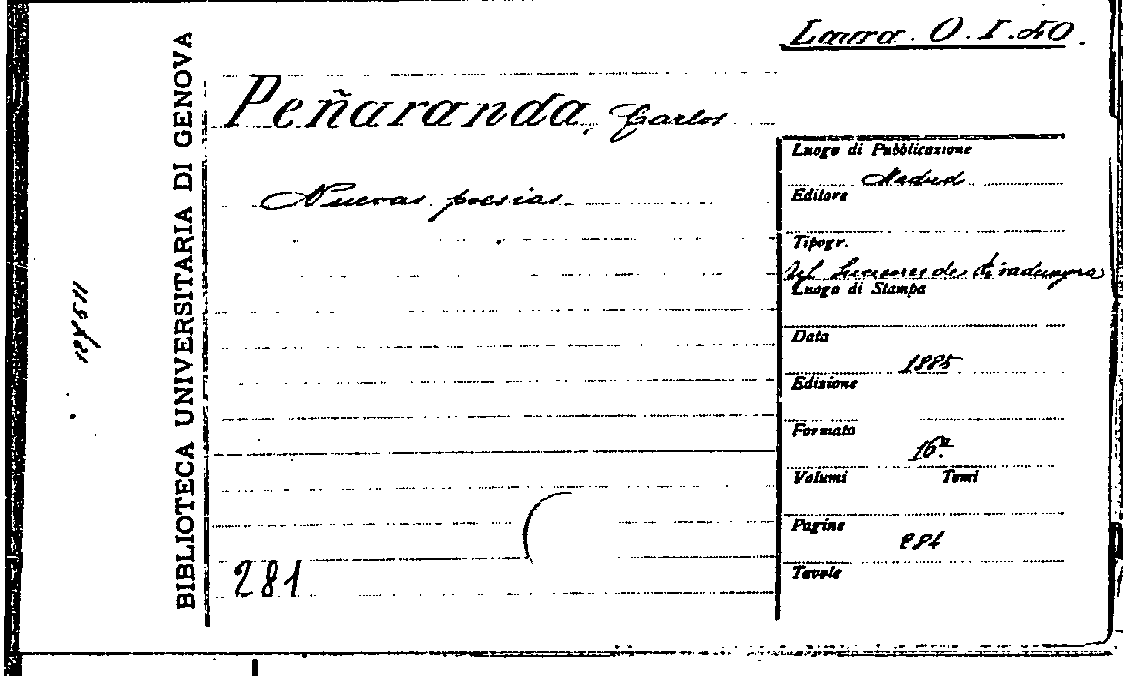 Laura. O. I. 40.
BIBLIOTECA UNIVERSITARIA DI GENOVA
Peñaranda, Carlos
Nuevas poesias
281
Luogo di Pubblicazione
Madrid
Editore
Tipogr.
Sucesores de Rivadeneyra
Luogo di Stampa
Data
1885
Edizione
Formato
16º
Volumi Tomi
Pagine
284
Tavole